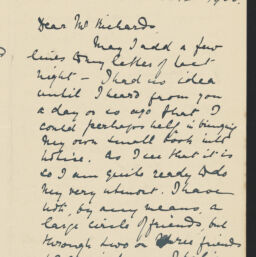 Dear Mr Richards,
May I add a few
lines to my letter of last
night – I had no idea
until I heard from you
a day or so ago that I
could perhaps help in bringing
my own small book into
notice. As I see that it is
so I am quite ready to do
my very utmost. I have
not, by any means, a
large circle of friends, but
through two or three friends